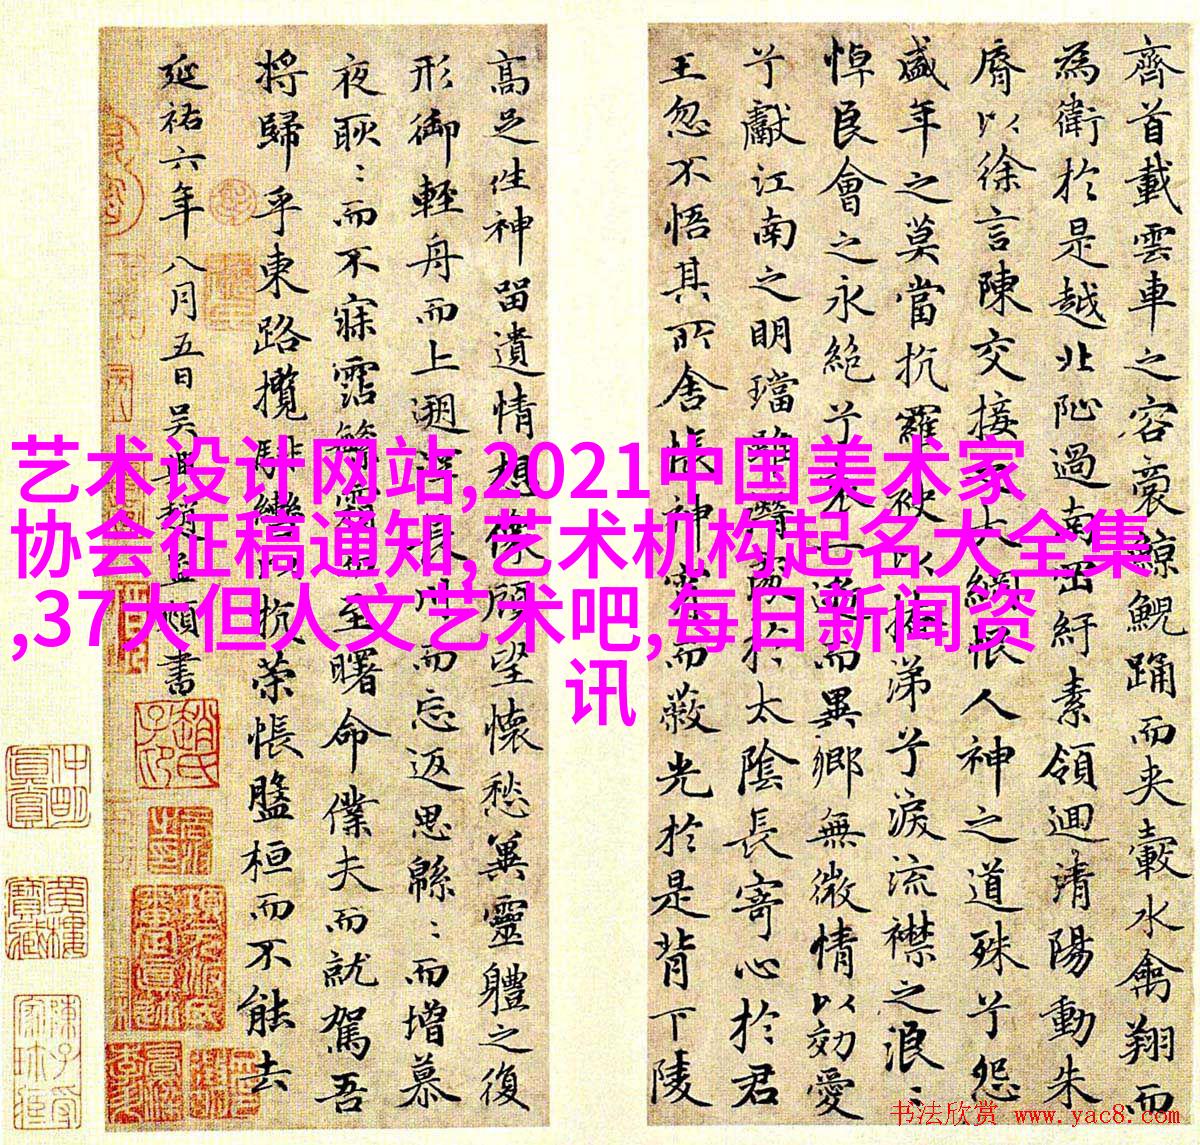 齊首載雲車之容裔鯨鯢踊而夾轂水禽翔而
為衛於是越北沚過南岡紆素領迴清陽動朱
脣以徐言陳交接之大綱恨人神之道殊兮怨
盛年之莫當抗羅袂以掩涕兮淚流襟之浪〻
悼良會之永絕兮哀一逝而異鄉無微情以効愛
兮獻江南之明璫雖潛處於太陰長寄心於君
王忽不悟其所舍悵神宵而蔽光於是背下陵
高足性神留遺情想像顧望懷愁冀靈體之復
形御輕舟而上遡浮長川而忘返思緜〻而增慕
夜耿〻而不寐霑繁霜而至曙命僕夫而就駕吾
將歸乎東路攬騑轡以抗策悵盤桓而不能去
延祐六年八月五日吳興趙孟頫書
艺术设计网站,2021中国美术家
协会征稿通知,艺术机构起名大全集
,37大但人文艺术吧,每日新闻资
讯
书法欣赏 www.yac8.com